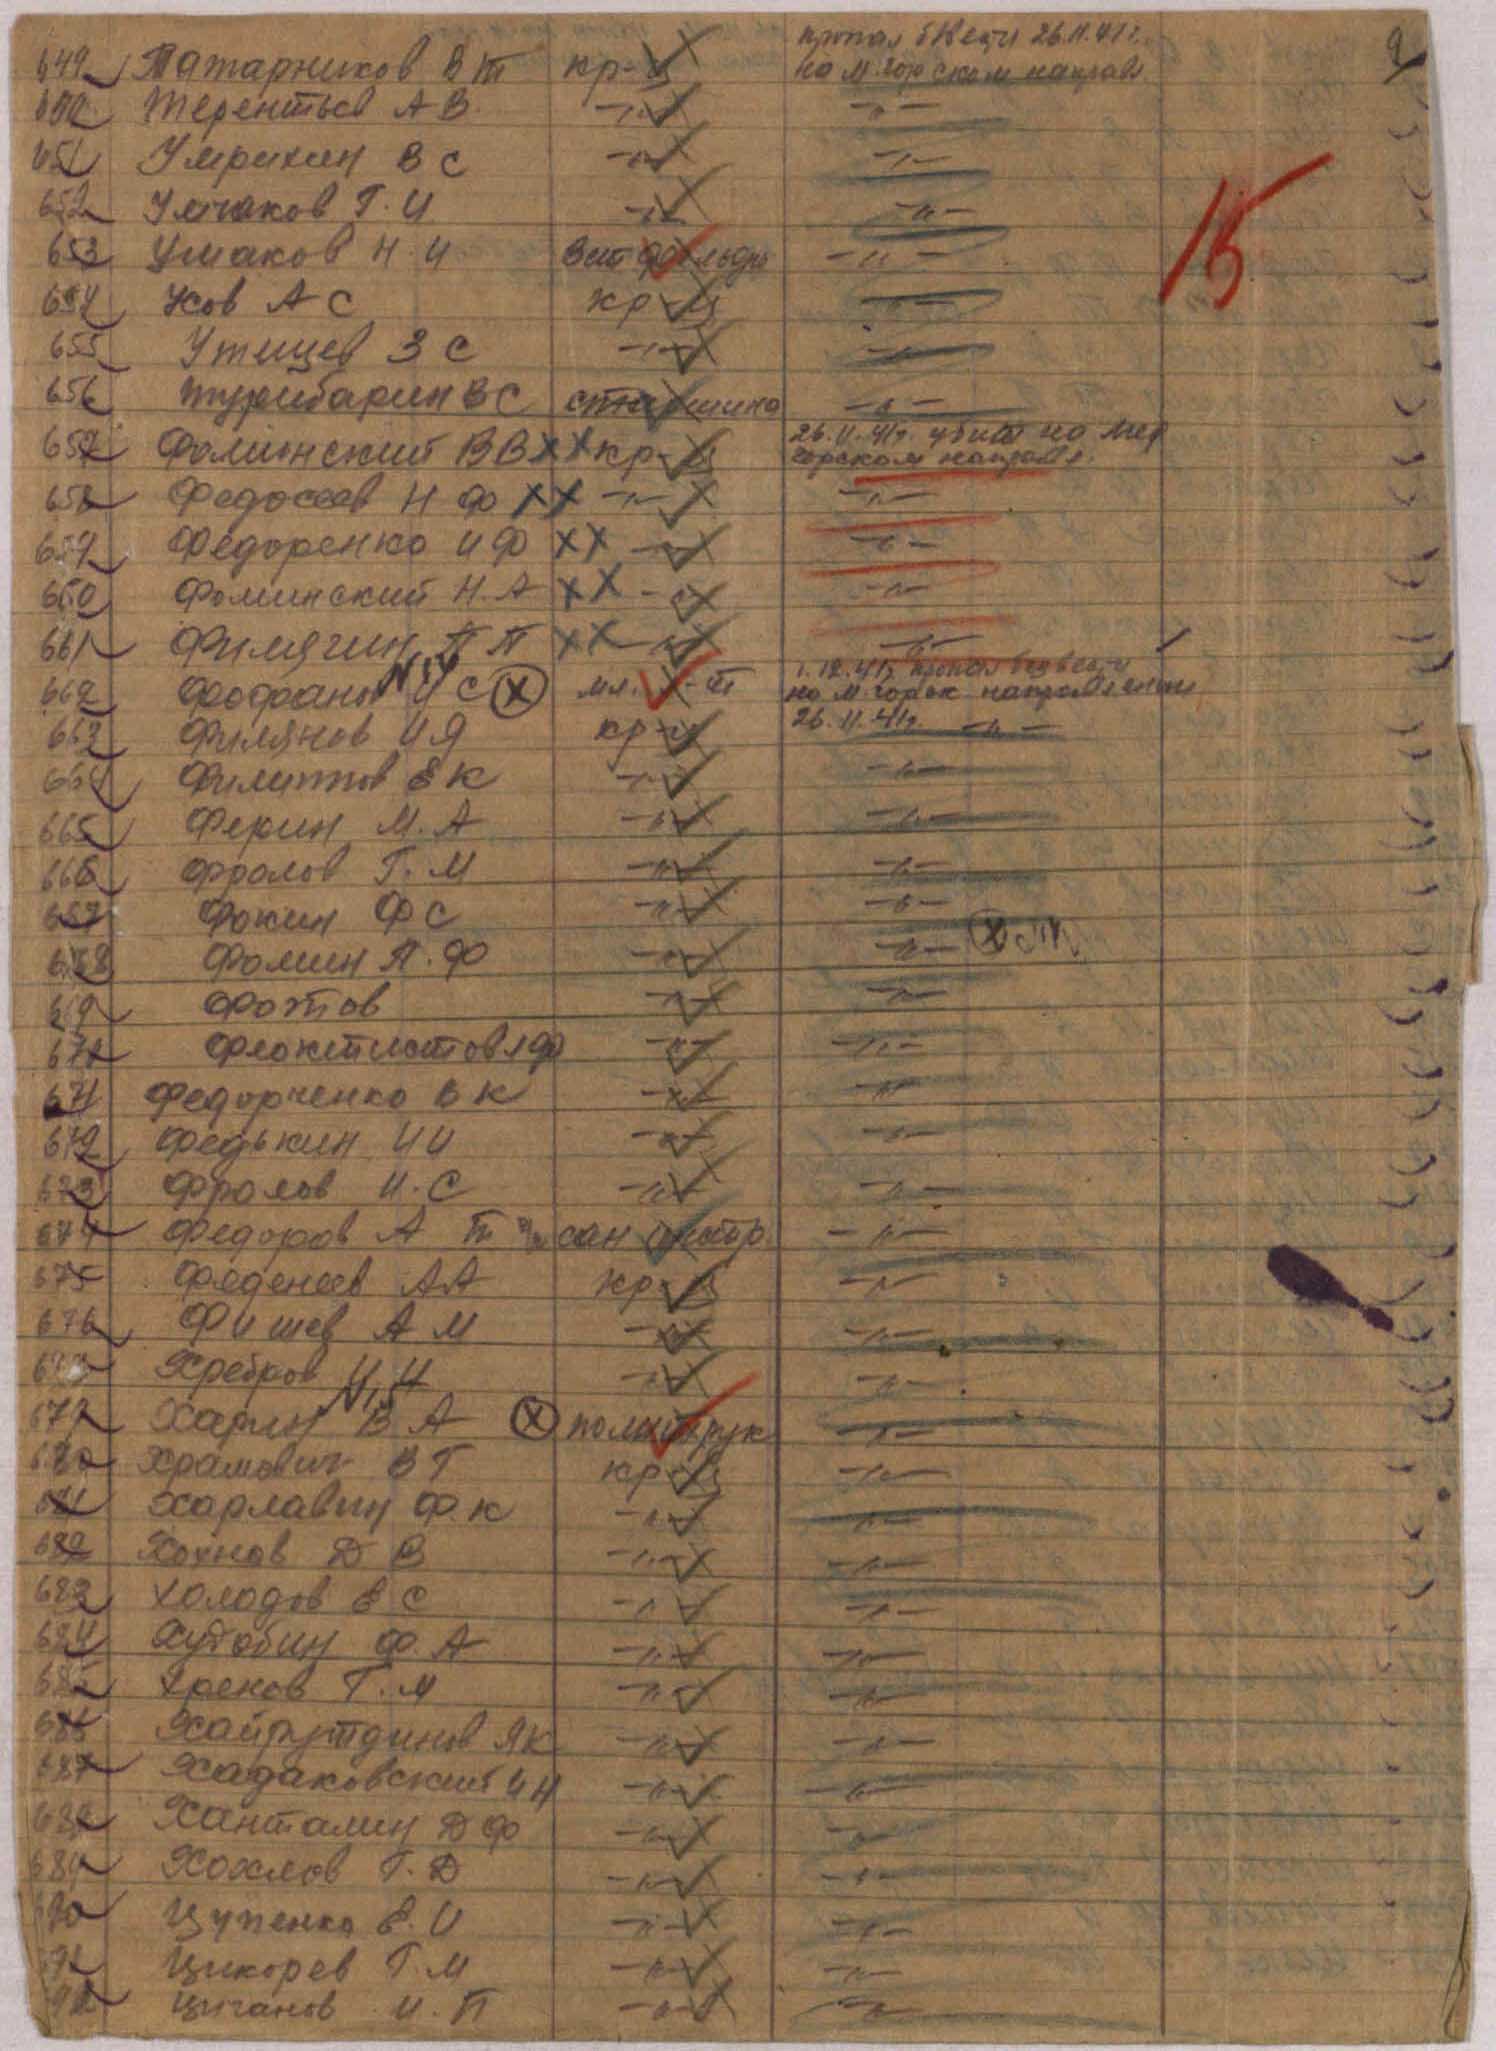 649 Татарников В Т кр-ц пропал б/вести 26.11.41 г. на М. горском направл.
650 Терентьев А В. -"- -"-
651 Умрихин В С -"- -"-
652 Умчаков Г. И -"- -"-
653 Ушаков Н. И -"-
654 Усов А С кр-ц -"-
655 Утищев З С -"- -"-
656 ВС старшина -"-
657 Фоминский ВВ ХХ кр-ц 26.11.41г. убит на М горском направл.
658 Федосеев Н Ф ХХ -"- -"-
659 Федоренко И Ф ХХ -"- -"-
660 Фоминский Н. А ХХ -"- -"-
661 Филягин П П ХХ -"- -"-
662 Фофанов И С Х мл. 1.12.41г. пропал без вести на М. горск направлении
663 Филянов И Я кр-ц 26.11.41г. -"-
664 Филиппов Е К -"- -"-
665 Ферин М. А -"- -"-
666 Фролов Г. М -"- -"-
667 Фокин Ф С -"- -"-
668 Фомин П. Ф -"- -"- Х
669 Фотов -"- -"-
670 Феоктистов -"- -"-
671 Федорченко В К -"- -"-
672 Федькин И И -"- -"-
673 Фролов И. С -"- -"-
674 Федоров А П сан инстр. -"-
675 Феденеев А А кр-ц -"-
676 Фишев А М -"- -"-
Хребров И. И -"- -"-
679 Харин В А Х политрук -"-
680 Храмович В Г кр-ц -"-
681 Харлавин Ф. К -"- -"-
682 Хохнов Д В -"- -"-
683 Холодов Е С -"- -"-
684 Худобин Ф. А -"- -"-
685 Хренов Г. М -"- -"-
686 Хайрутдинов Я К -"- -"-
687 Хадаковский И Н -"- -"-
688 Ханталин Д Ф -"- -"-
689 Хохлов Г. Д -"- -"-
690 Цупенко Е. И -"- -"-
Цикорев Г. М -"- -"-
Цыганов И. П -"- -"-
15